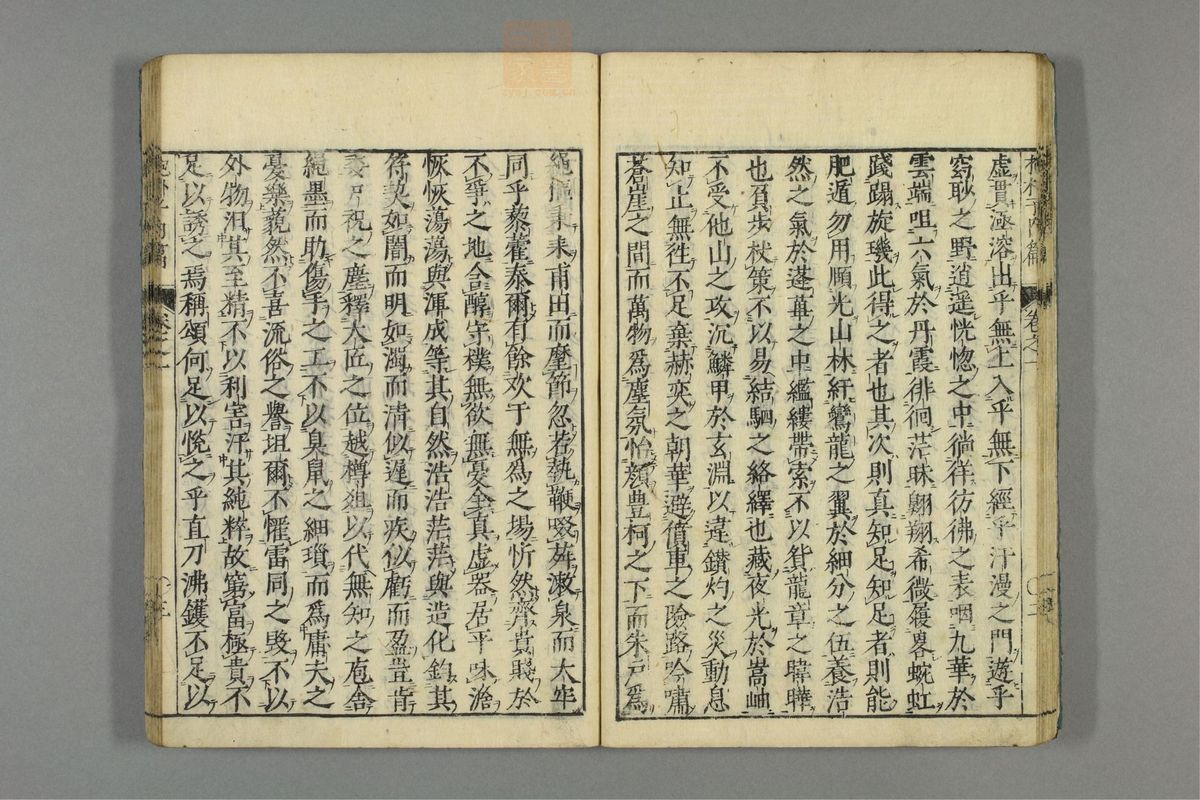 虛貫渾溶出乎無上入乎無下經乎汗漫之門遊乎
窈眇之野逍遥恍惚之中徜徉彷彿之表咽九華於
雲端咀六氣於丹霞徘徊茫昧翺翔希微履畧蜿虹
踐躡旋璣此得之者也其次則真知足知足者則能
肥遁勿用頤光山林紆鸞龍之翼於細分之伍養浩
然之氣於蓬蓽之中繿縷帶索不以貿龍章之暐曄
也負步杖策不以易結駟之絡繹也藏夜光於嵩岫
不受他山之攻沉鱗甲於玄淵以違鑽灼之災動息
知止無徃不足棄赫奕之朝華避僨車之險路吟嘯
蒼崖之間而萬物爲塵氛怡顔豊柯之下而朱戸爲
繩樞秉耒甫田而麾節忽若執鞭啜荈漱泉而大牢
同乎藜藿泰爾有餘欢于無爲之場忻然齊貴賤於
不爭之地含醇守樸無欲無憂全真虛器居平味澹
恢恢蕩蕩與渾成等其自然浩浩茫茫與造化鈞其
符契如闇而明如濁而清似遲而疾似虧而盈豈肯
委尸祝之塵釋大匠之位越樽爼以代無知之庖舍
繩墨而助傷手之工不以臭䑕之細瑣而爲庸夫之
憂樂藐然不喜流俗之譽坦爾不懼雷同之毀不以
外物汩其至精不以利害汙其純粹故窮富極貴不
足以誘之焉稱頌何足以悅之乎直刀沸鑊不足以
卷之一